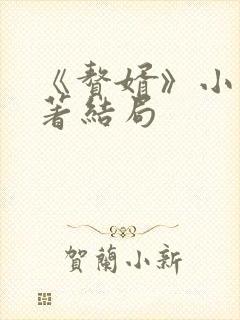 《贅婿》小
著結局
賀蘭小新